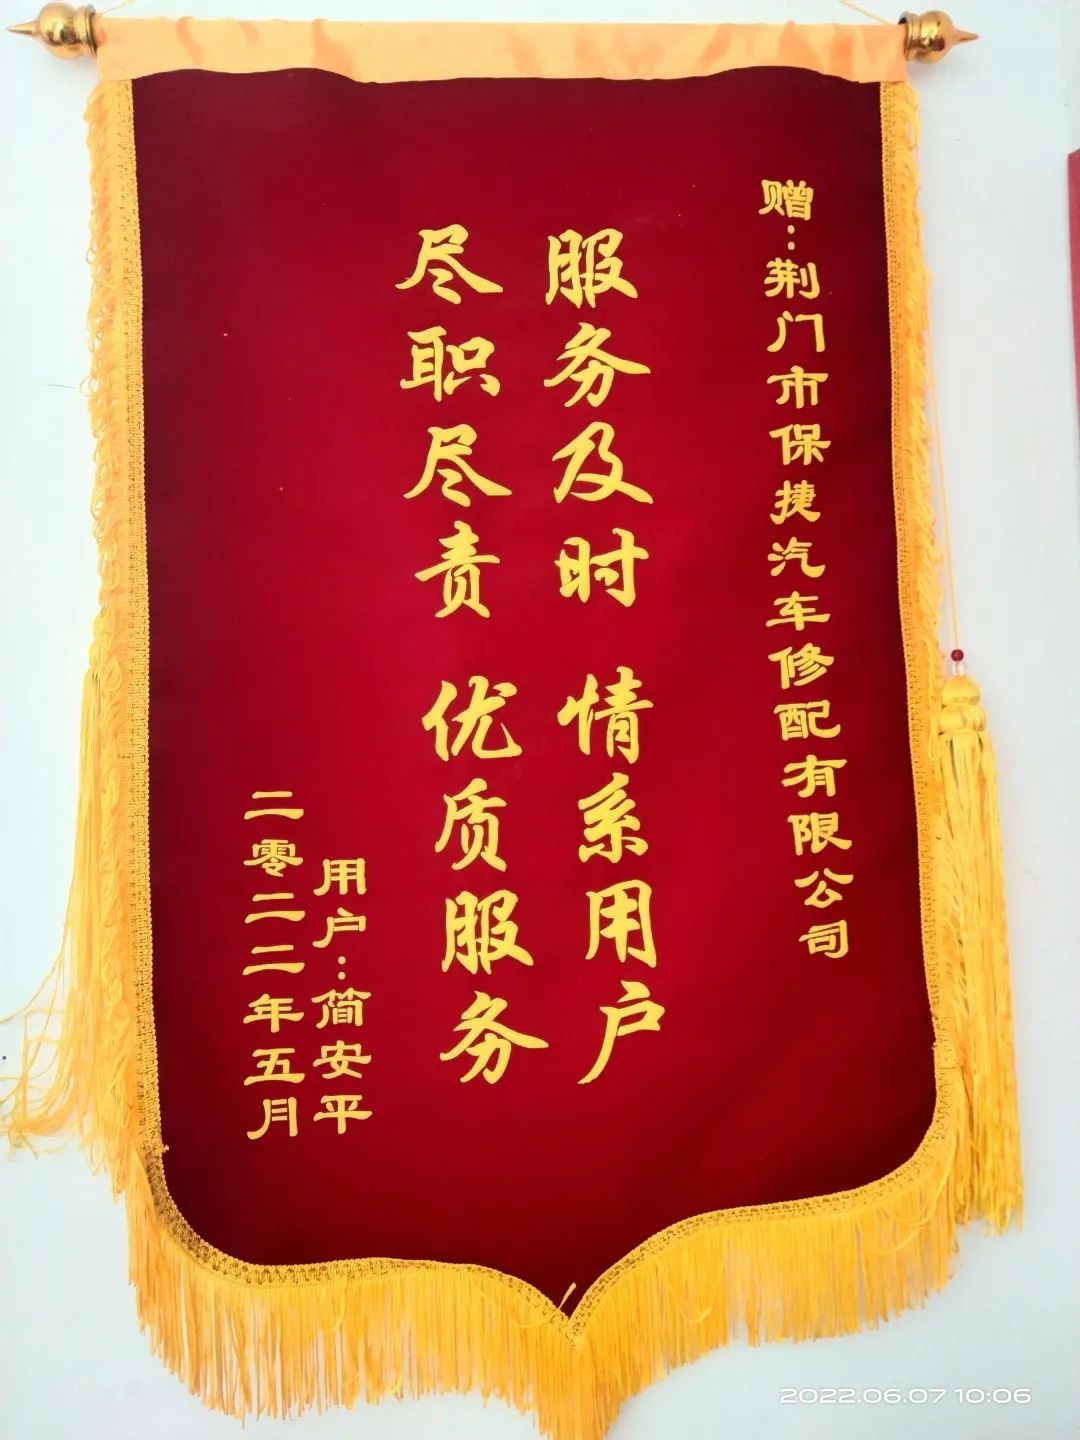 赠：荆门市保捷汽车修配有限公司
服务及时 情系用户
尽职尽责 优质服务
用户：简安平
二零二二年五月
2022.06.07 10:06